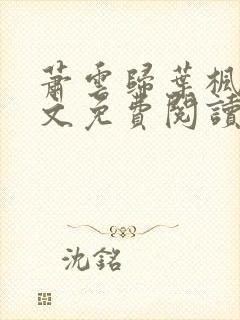 蕭雲歸葉楓
文免費閱讀
沈銘